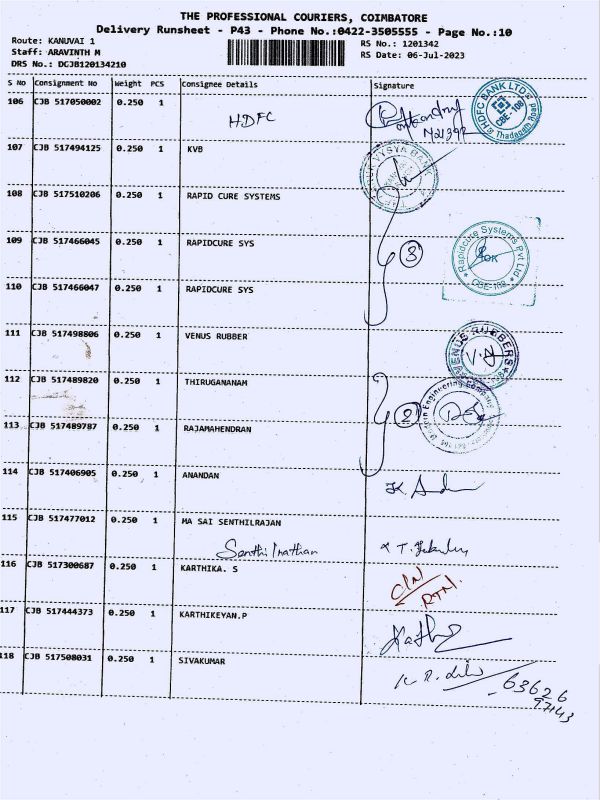 THE PROFESSIONAL COURIERS, COIMBATORE
Delivery Runsheet - P43 - Phone No.:0422-3505555 - Page No.:10
Route: KANUVAI 1
RS No.: 1201342
Staff: ARAVINTH M
RS Date: 06-Jul-2023
DRS No.: DCJB120134210
S No Consignment No Weight PCS Consignee Details Signature
106 CJB 517050002 0.250 1 HDFC
HDFC BANK LTD CBE-108 Thadagam Road
107 CJB 517494125 0.250 1 KVB
VYSYA BANK
108 CJB 517510206 0.250 1 RAPID CURE SYSTEMS
109 CJB 517466045 0.250 1 RAPIDCURE SYS 3
Rapidcure Systems Pvt Ltd CBE-108
110 CJB 517466047 0.250 1 RAPIDCURE SYS
111 CJB 517498806 0.250 1 VENUS RUBBER
VENUS RUBBERS
112 CJB 517489820 0.250 1 THIRUGANANAM 2
Engineering Company
113 CJB 517489787 0.250 1 RAJAMAHENDRAN
114 CJB 517406905 0.250 1 ANANDAN
115 CJB 517477012 0.250 1 MA SAI SENTHILRAJAN
Senthilnathan
116 CJB 517300687 0.250 1 KARTHIKA. S
RTN
117 CJB 517444373 0.250 1 KARTHIKEYAN.P
118 CJB 517508031 0.250 1 SIVAKUMAR
63626
97143